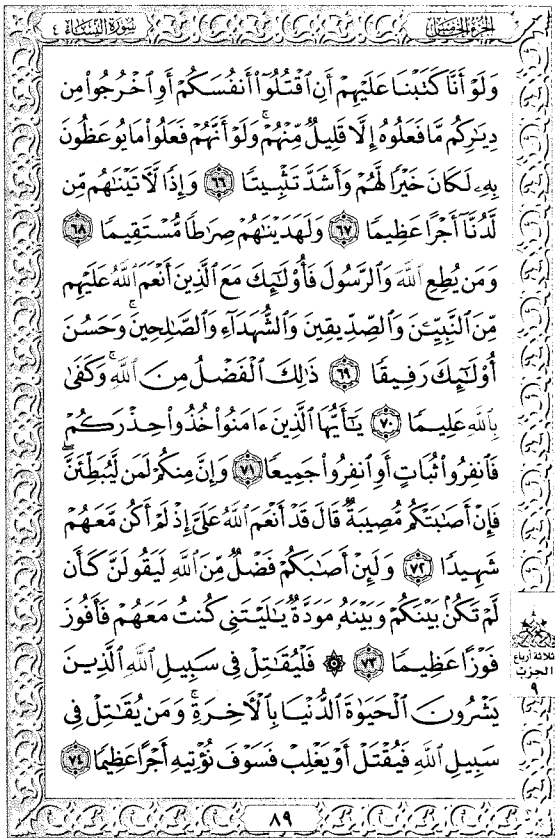 سورة النساء ٤
الجزء الخامس
وَلَوْ أَنَّا كَتَبْنَا عَلَيْهِمْ أَنِ ٱقْتُلُوٓا۟ أَنفُسَكُمْ أَوِ ٱخْرُجُوا۟ مِن
دِيَٰرِكُم مَّا فَعَلُوهُ إِلَّا قَلِيلٌ مِّنْهُمْ ۖ وَلَوْ أَنَّهُمْ فَعَلُوا۟ مَا يُوعَظُونَ
بِهِۦ لَكَانَ خَيْرًا لَّهُمْ وَأَشَدَّ تَثْبِيتًا ٦٦ وَإِذًا لَّءَاتَيْنَٰهُم مِّن
لَّدُنَّآ أَجْرًا عَظِيمًا ٦٧ وَلَهَدَيْنَٰهُمْ صِرَٰطًا مُّسْتَقِيمًا ٦٨
وَمَن يُطِعِ ٱللَّهَ وَٱلرَّسُولَ فَأُو۟لَٰٓئِكَ مَعَ ٱلَّذِينَ أَنْعَمَ ٱللَّهُ عَلَيْهِم
مِّنَ ٱلنَّبِيِّـۧنَ وَٱلصِّدِّيقِينَ وَٱلشُّهَدَآءِ وَٱلصَّٰلِحِينَ ۚ وَحَسُنَ
أُو۟لَٰٓئِكَ رَفِيقًا ٦٩ ذَٰلِكَ ٱلْفَضْلُ مِنَ ٱللَّهِ ۚ وَكَفَىٰ
بِٱللَّهِ عَلِيمًا ٧٠ يَٰٓأَيُّهَا ٱلَّذِينَ ءَامَنُوا۟ خُذُوا۟ حِذْرَكُمْ
فَٱنفِرُوا۟ ثُبَاتٍ أَوِ ٱنفِرُوا۟ جَمِيعًا ٧١ وَإِنَّ مِنكُمْ لَمَن لَّيُبَطِّئَنَّ ۖ
فَإِنْ أَصَٰبَتْكُم مُّصِيبَةٌ قَالَ قَدْ أَنْعَمَ ٱللَّهُ عَلَىَّ إِذْ لَمْ أَكُن مَّعَهُمْ
شَهِيدًا ٧٢ وَلَئِنْ أَصَٰبَكُمْ فَضْلٌ مِّنَ ٱللَّهِ لَيَقُولَنَّ كَأَن
لَّمْ تَكُنۢ بَيْنَكُمْ وَبَيْنَهُۥ مَوَدَّةٌ يَٰلَيْتَنِى كُنتُ مَعَهُمْ فَأَفُوزَ
فَوْزًا عَظِيمًا ٧٣ ۞ فَلْيُقَٰتِلْ فِى سَبِيلِ ٱللَّهِ ٱلَّذِينَ
يَشْرُونَ ٱلْحَيَوٰةَ ٱلدُّنْيَا بِٱلْءَاخِرَةِ ۚ وَمَن يُقَٰتِلْ فِى
سَبِيلِ ٱللَّهِ فَيُقْتَلْ أَوْ يَغْلِبْ فَسَوْفَ نُؤْتِيهِ أَجْرًا عَظِيمًا ٧٤
ثلاثة أرباع
الحزب
٩
٨٩